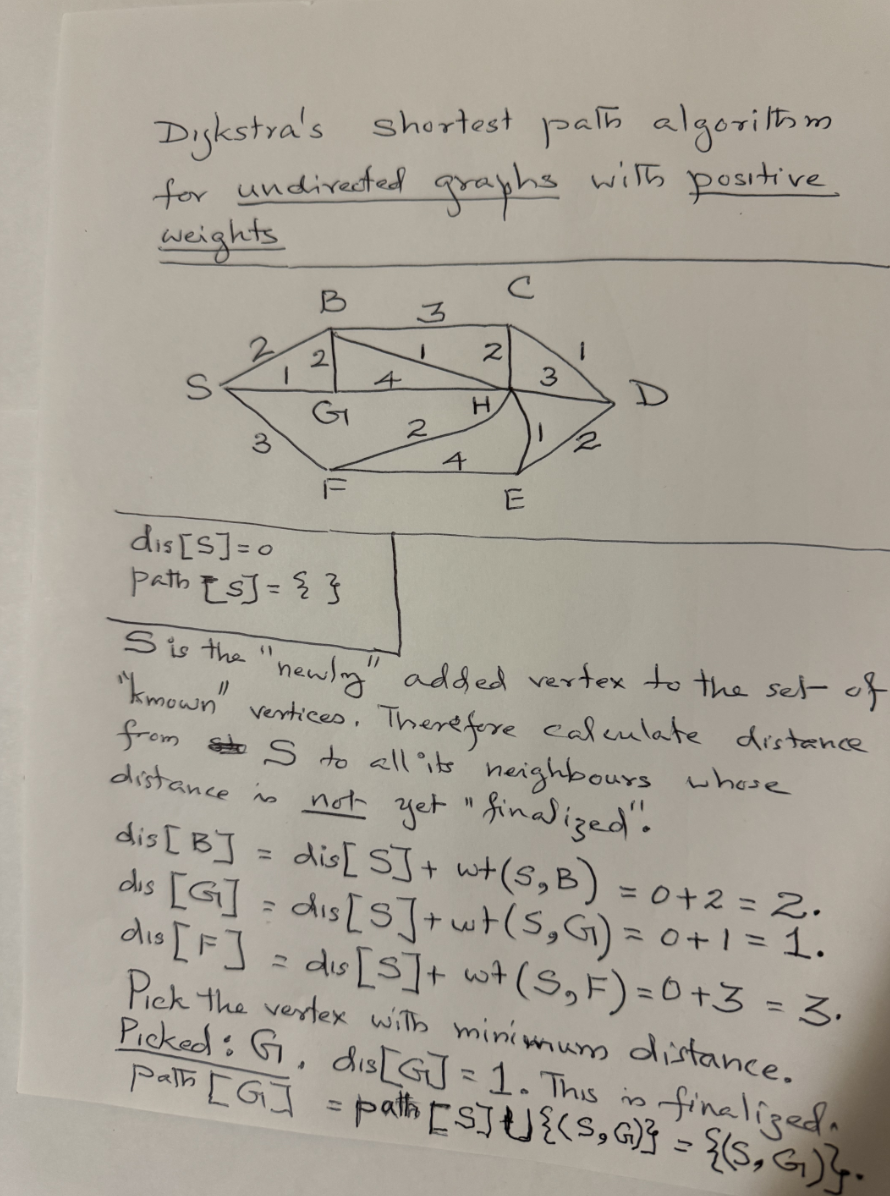 Dijkstra's shortest path algorithm
for undirected graphs with positive
weights
B 3 C
2 2 1 2 1
S 1 4 3 D
G H
3 2 1 2
4
F E
dis[S]=0
path [S]={ }
S is the "newly" added vertex to the set of
"known" vertices. Therefore calculate distance
from S to all its neighbours whose
distance is not yet "finalized".
dis[B] = dis[S]+ wt(S,B) = 0+2 = 2.
dis [G] = dis[S]+wt(S,G) = 0+1 = 1.
dis[F] = dis[S]+ wt(S,F)=0+3 = 3.
Pick the vertex with minimum distance.
Picked: G. dis[G] = 1. This is finalized.
path [G] = path[S]∪{(S,G)} = {(S,G)}.